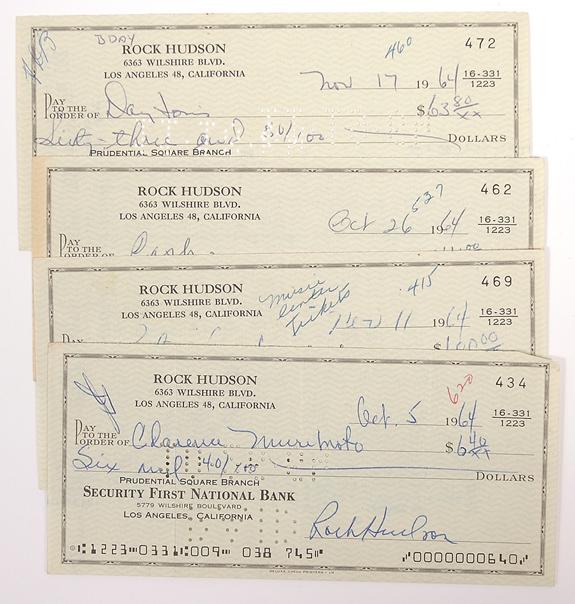 BDAY
ROCK HUDSON 460 472
6363 WILSHIRE BLVD.
LOS ANGELES 48, CALIFORNIA
Nov 17 1964 16-331
1223
PAY
TO THE
ORDER OF $63 80/xx
Sixty-three and 80/100 DOLLARS
PRUDENTIAL SQUARE BRANCH
ROCK HUDSON 462
6363 WILSHIRE BLVD. 527
LOS ANGELES 48, CALIFORNIA
Oct 26 1964 16-331
1223
PAY
TO THE
ORDER OF Cash
ROCK HUDSON 415 469
6363 WILSHIRE BLVD. Music
LOS ANGELES 48, CALIFORNIA Center
Tickets
Nov 11 1964 16-331
1223
PAY
TO THE
$100.00
ROCK HUDSON 620 434
6363 WILSHIRE BLVD.
LOS ANGELES 48, CALIFORNIA
Oct. 5 1964 16-331
1223
PAY
TO THE
ORDER OF Clarence Murimoto $6 40/xx
Six and 40/100 DOLLARS
PRUDENTIAL SQUARE BRANCH
SECURITY FIRST NATIONAL BANK
5779 WILSHIRE BOULEVARD
LOS ANGELES, CALIFORNIA
Rock Hudson
1223 0331 009 038 745 0000000640